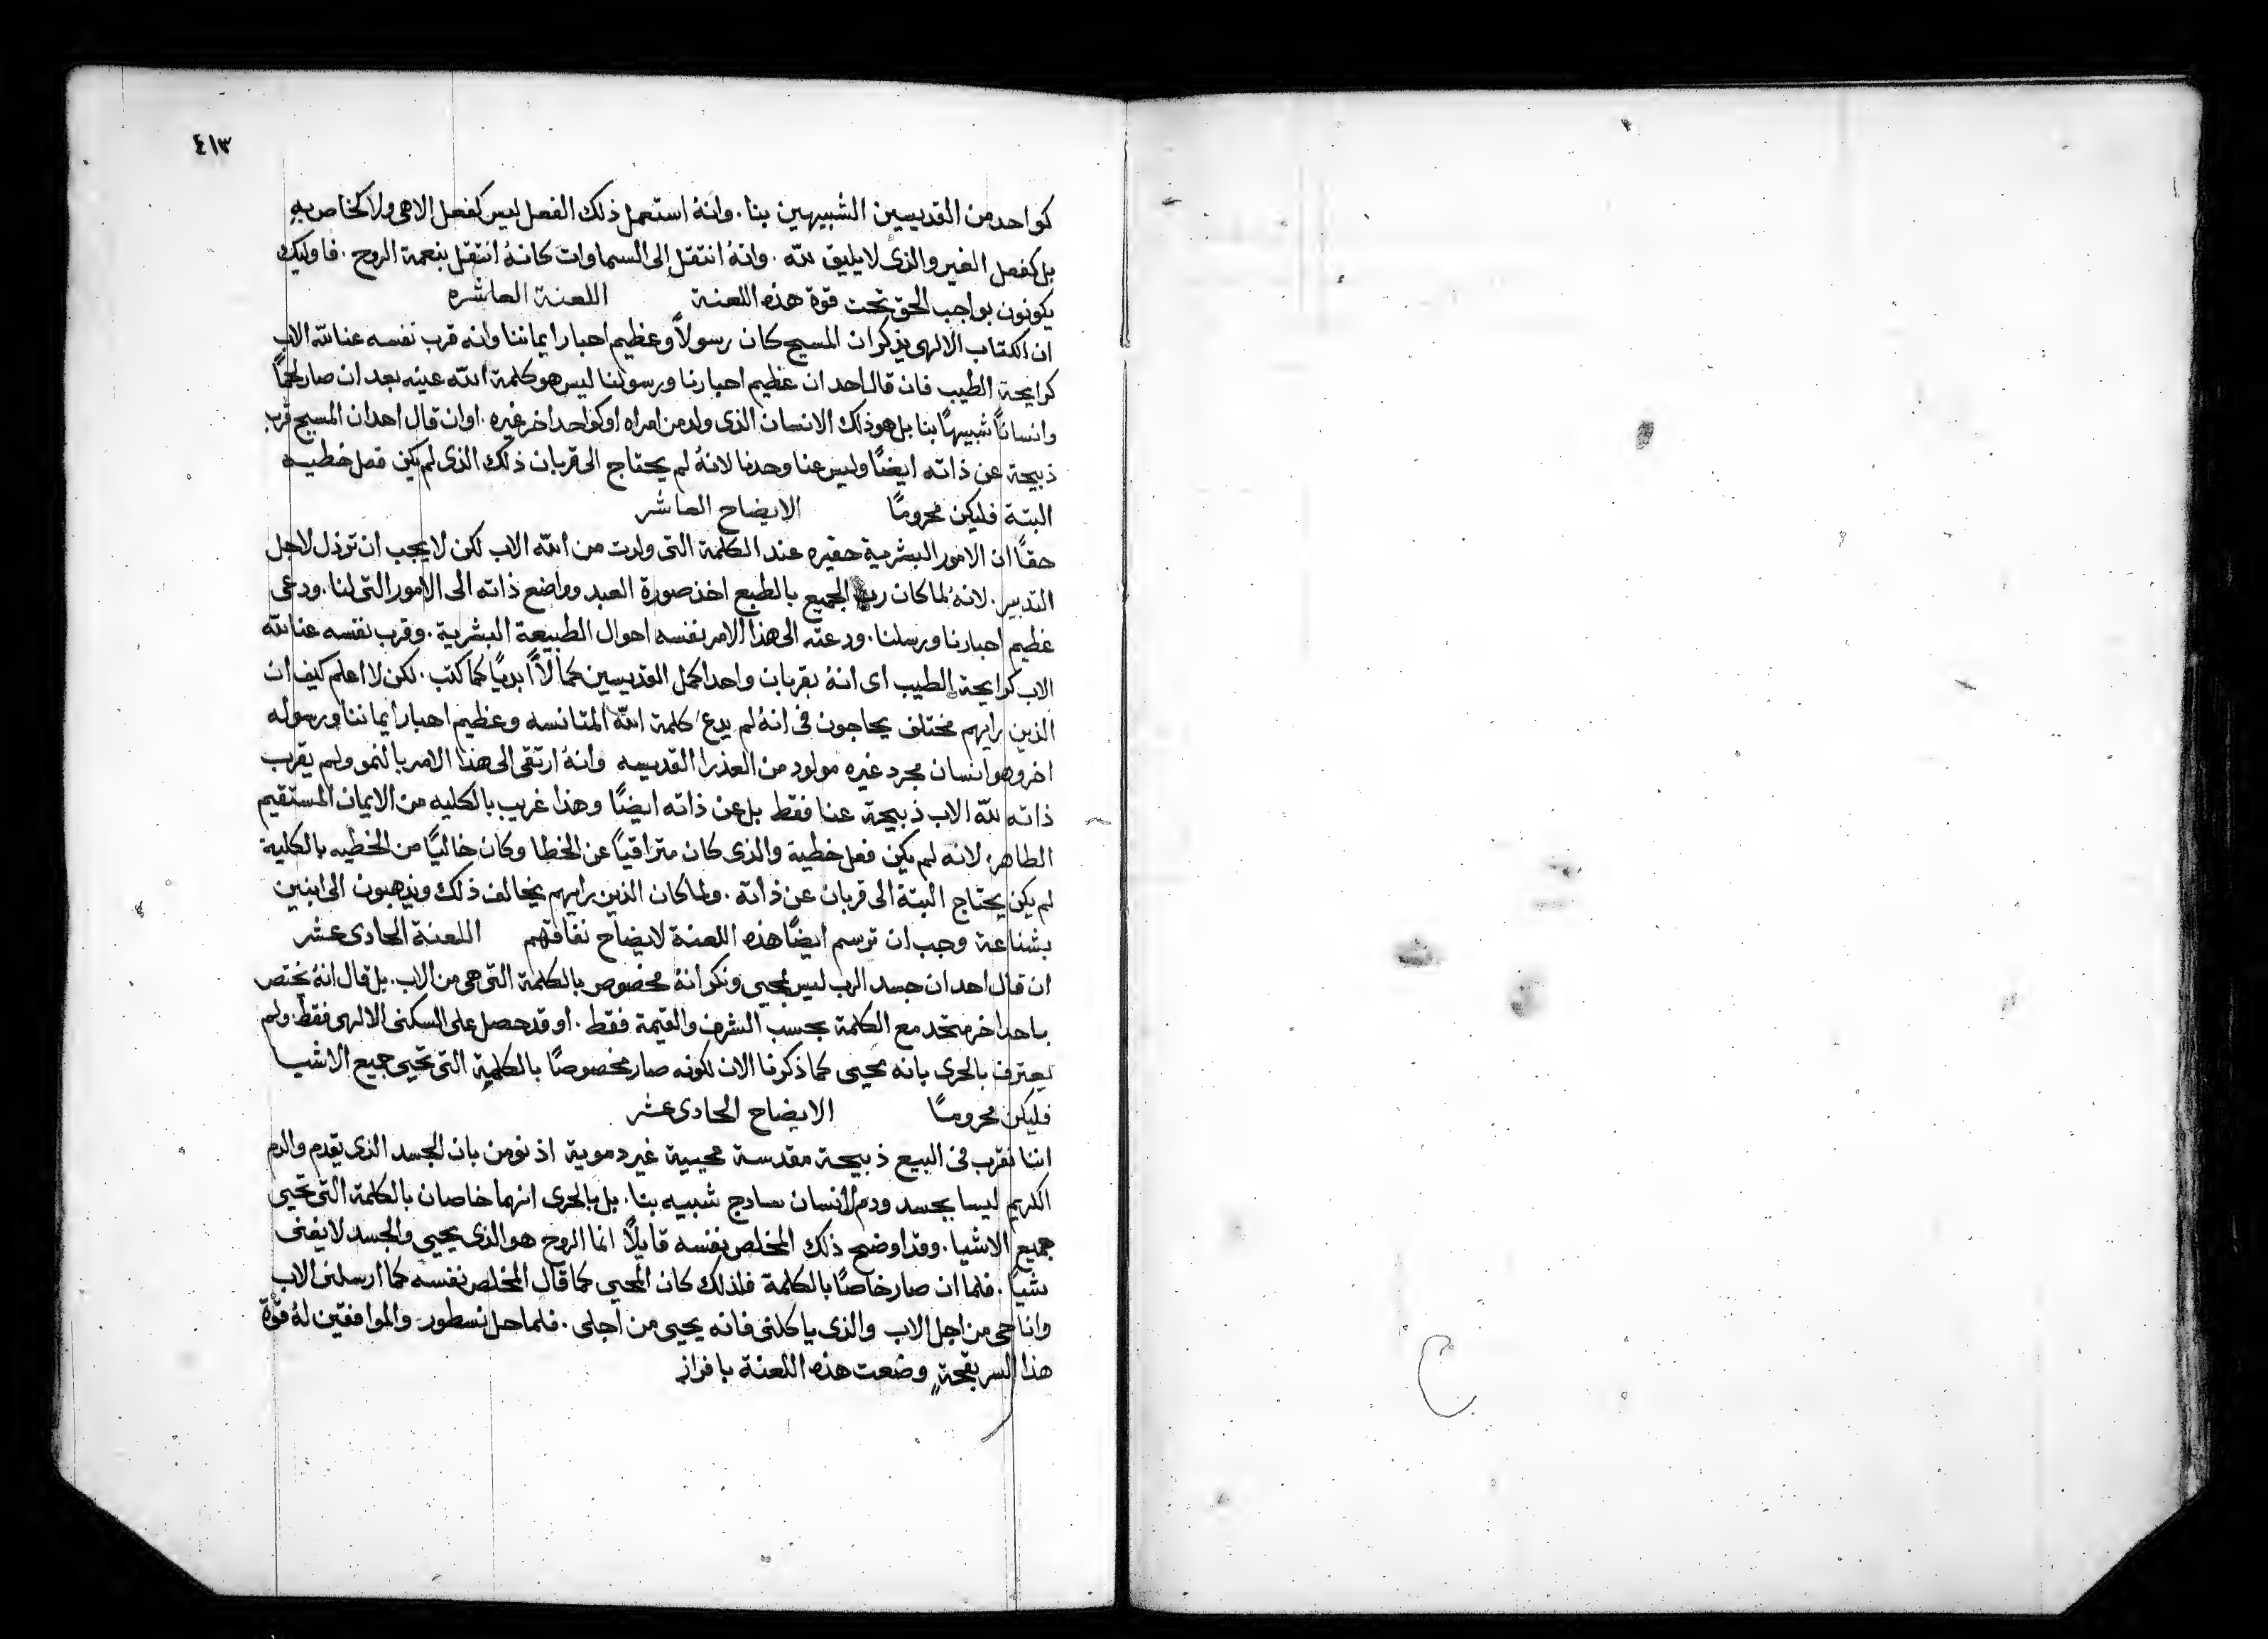 ٤١٣
كواحد من القديسين الشبيهين بنا. وانهُ استعمل ذلك الفعل ليس كفعل الاهى ولا كخاص بهِ
بل كفعل الغير والذى لا يليق لله. وانهُ انتقل الى السماوات كانهُ انتقل بنعمة الروح. فاوليك
يكونون بواجب الحق تحت قوة هذه اللعنة اللعنة العاشره
ان الكتاب الالهى يذكر ان المسيح كان رسولاً وعظيم احبار ايماننا وانه قرب نفسه عنا لله الاب
كرايحة الطيب فان قال احد ان عظيم احبارنا ورسولنا ليس هو كلمة الله عينه بعد ان صار لحماً
وانساناً شبيهاً بنا بل هو ذلك الانسان الذى ولد من امراه او كواحد اخر غيره. او ان قال احد ان المسيح قرب
ذبيحة عن ذاته ايضًا وليس عنا وحدنا لانهُ لم يحتاج الى قربان ذلك الذى لم يكن فعل خطيه
البتة فليكن محرومًا الايضاح العاشر
حقًا ان الامور البشرية حقيره عند الكلمة التى ولدت من الله الاب لكن لا يجب ان ترذل لاجل
التدبير. لانهُ لما كان رب الجميع بالطبع اخذ صورة العبد وواضع ذاته الى الامور التى لنا. ودعى
عظيم احبارنا ورسلنا. ودعته الى هذا الامر نفسه احوال الطبيعة البشرية. وقرب نفسه عنا لله
الاب كرايحة الطيب اى انهُ بقربان واحد اكمل القديسين كمالاً ابديًا كما كتب. لكن لا اعلم كيف ان
الذين رايهم مختلف يحاجون فى انهُ لم يدع كلمة الله المتانسه وعظيم احبار ايماننا ورسوله
اخر وهو انسان مجرد غيره مولود من العذرا القديسه وانهُ ارتقى الى هذا الامر بالنمو ولم يقرب
ذاته لله الاب ذبيحة عنا فقط بل عن ذاته ايضًا وهذا غريب بالكليه من الايمان المستقيم
الطاهر. لانه لم يكن فعل خطية والذى كان متراقياً عن الخطا وكان خاليًا من الخطيه بالكلية
لم يكن يحتاج البتة الى قربان عن ذاته. ولما كان الذين رايهم يخالف ذلك ويذهبون الى ابنين
بشناعة وجب ان ترسم ايضًا هذه اللعنة لايضاح نفاقهم اللعنة الحادى عشر
ان قال احد ان جسد الرب ليس بمحيى ونكر انهُ مخصوص بالكلمة التى هى من الاب. بل قال انهُ يختص
باحد اخر متحد مع الكلمة بحسب الشرف والقيمة فقط. او قد حصل على السكنى الالهى فقط. ولم
يعترف بالحرى بانه محيى كما ذكرنا الان لكونه صار مخصوصًا بالكلمة التى تحيى جميع الاشيا
فليكن محرومًا الايضاح الحادى عشر
اننا نقرب فى البيع ذبيحة مقدسة محيية غير دموية اذ نومن بان الجسد الذى يقدم والدم
الكريم ليسا بجسد ودم لانسان سادج شبيه بنا. بل بالحرى انهما خاصان بالكلمة التى تحيى
جميع الاشيا. وقد اوضح ذلك المخلص نفسه قايلاً انما الروح هو الذى يحيى والجسد لا يفنى
شيًا. فلما ان صار خاصًا بالكلمة فلذلك كان المحيى كما قال المخلص نفسه كما ارسلنى الاب
وانا حى من اجل الاب والذى ياكلنى فانه يحيى من اجلى. فلما حل نسطور والموافقين لهُ قوة
هذا السر بقحةٍ وضعت هذه اللعنة بافراز